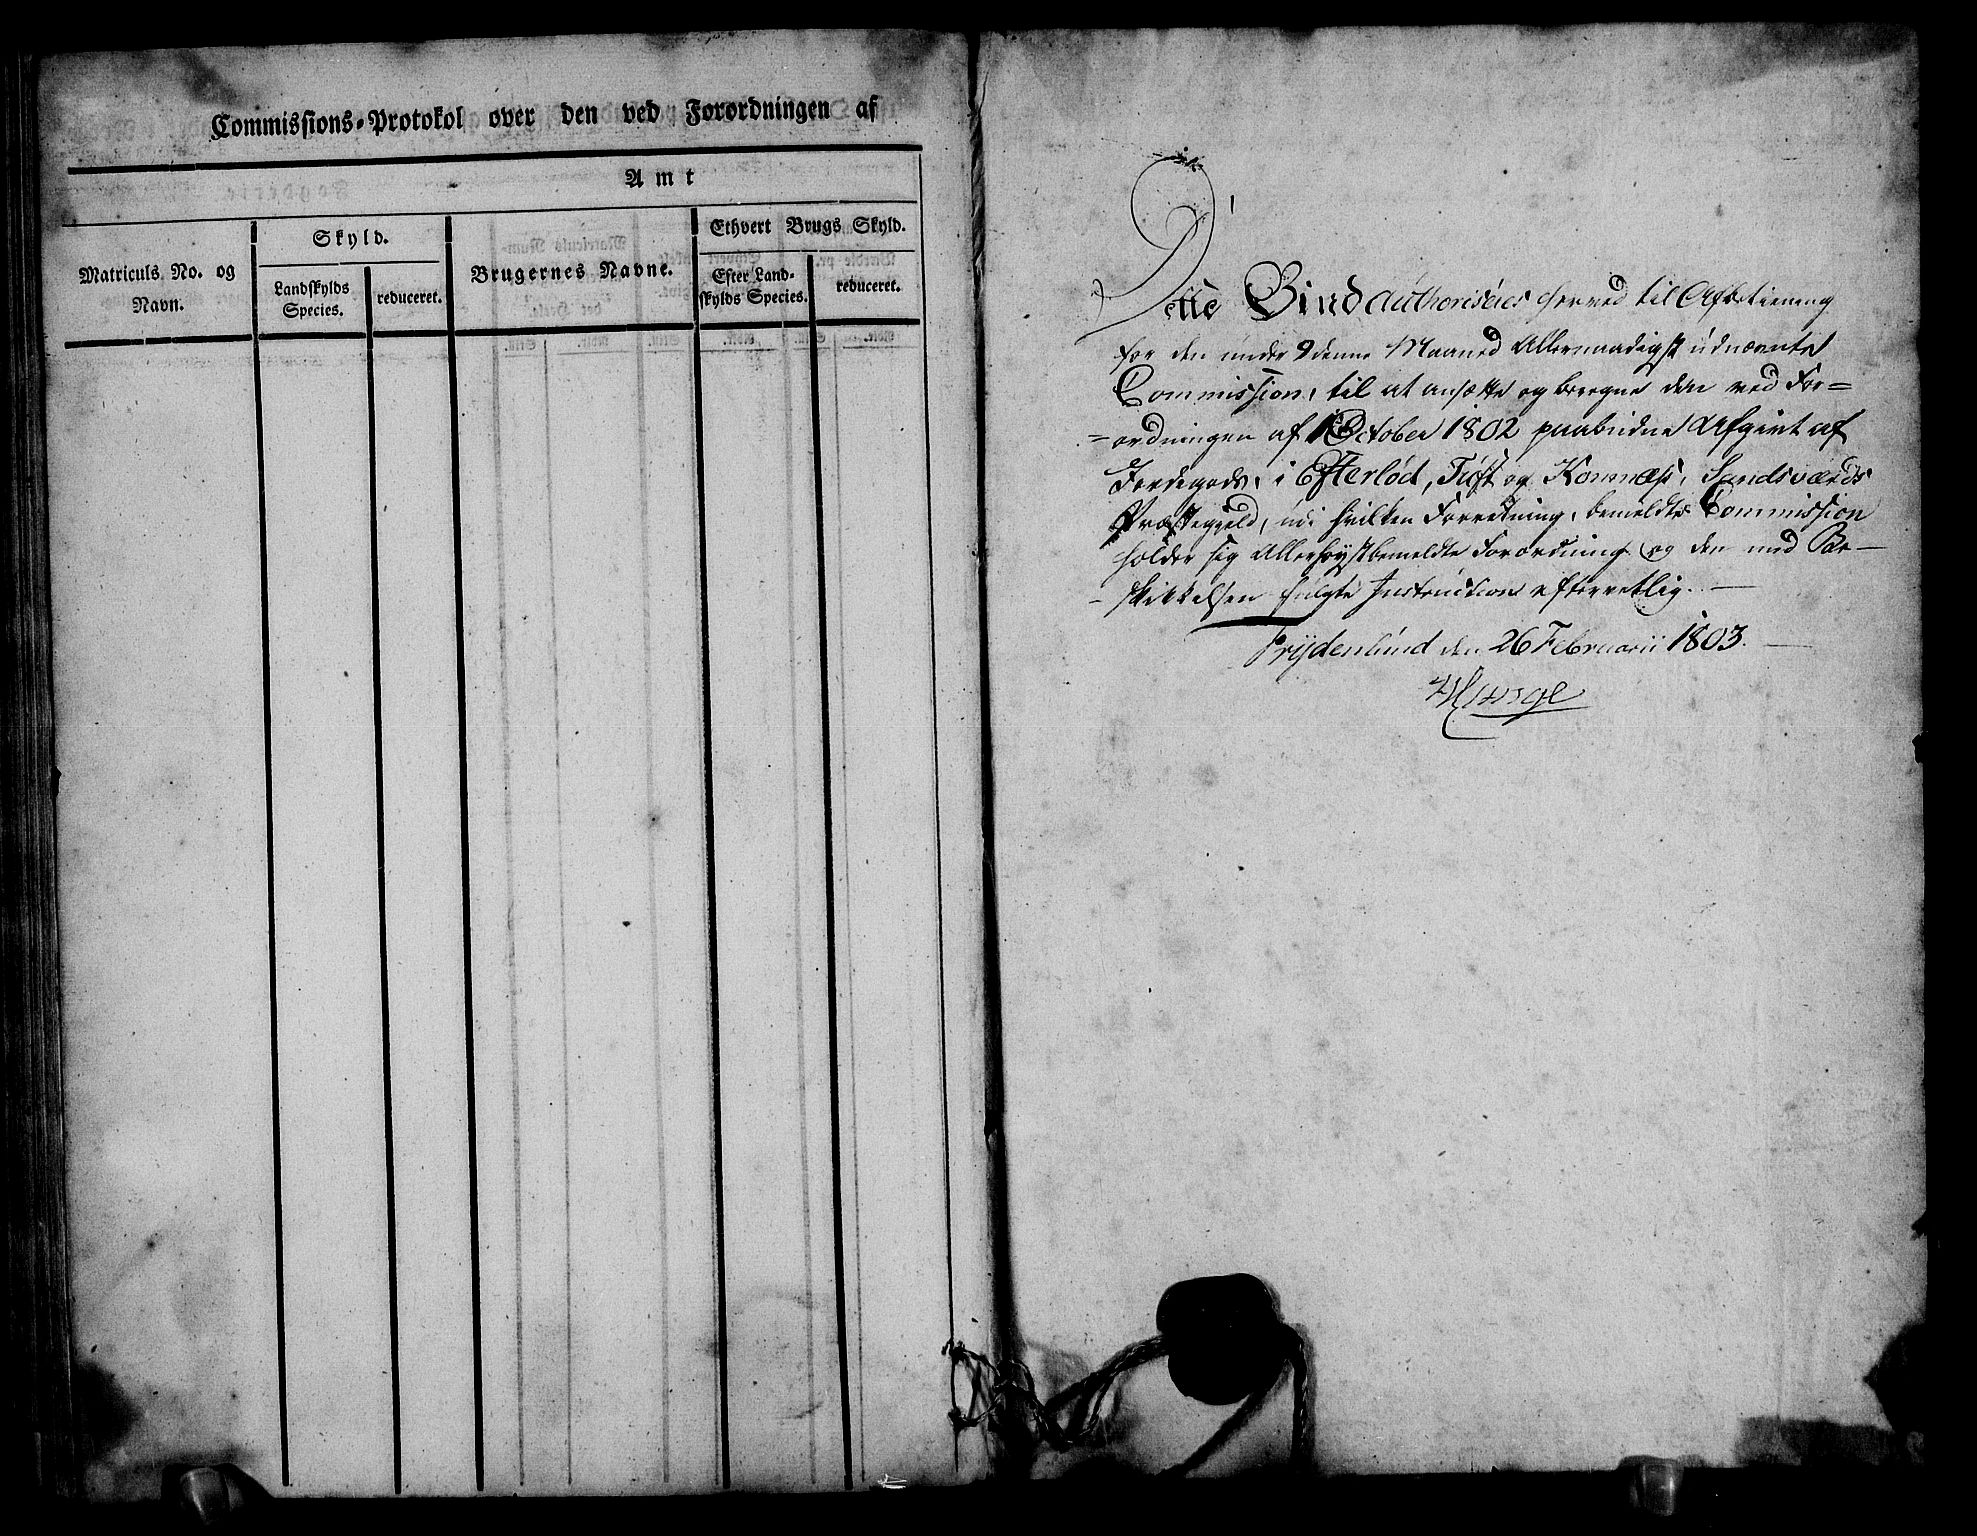 Commissions-Protokol over den ved Forordningen af
Amt
Matriculs No. og Navn.
Skyld.
Landskylds Species.
reduceret.
Brugernes Navne.
Ethvert Brugs Skyld.
Efter Landskylds Species.
reduceret.
Dette Bind authoriseres herved til Afbetiening
for den under 9 denne Maaned Allernaadigst udnævnte
Commission, til at ansætte og beregne den ved For=
=ordningen af 1 October 1802 paabudne Afgivt af
Jordegods, i Efterlød, Tuft og Komnæs, Sandsværds
Præstegield, udi hvilken Forretning, bemeldte Commission
holder sig Allerhøystbemeldte Forordning og den med Be-
-skikkelsen fulgte Instruction efterretlig.
Frydenlund den 26 Februarii 1803.